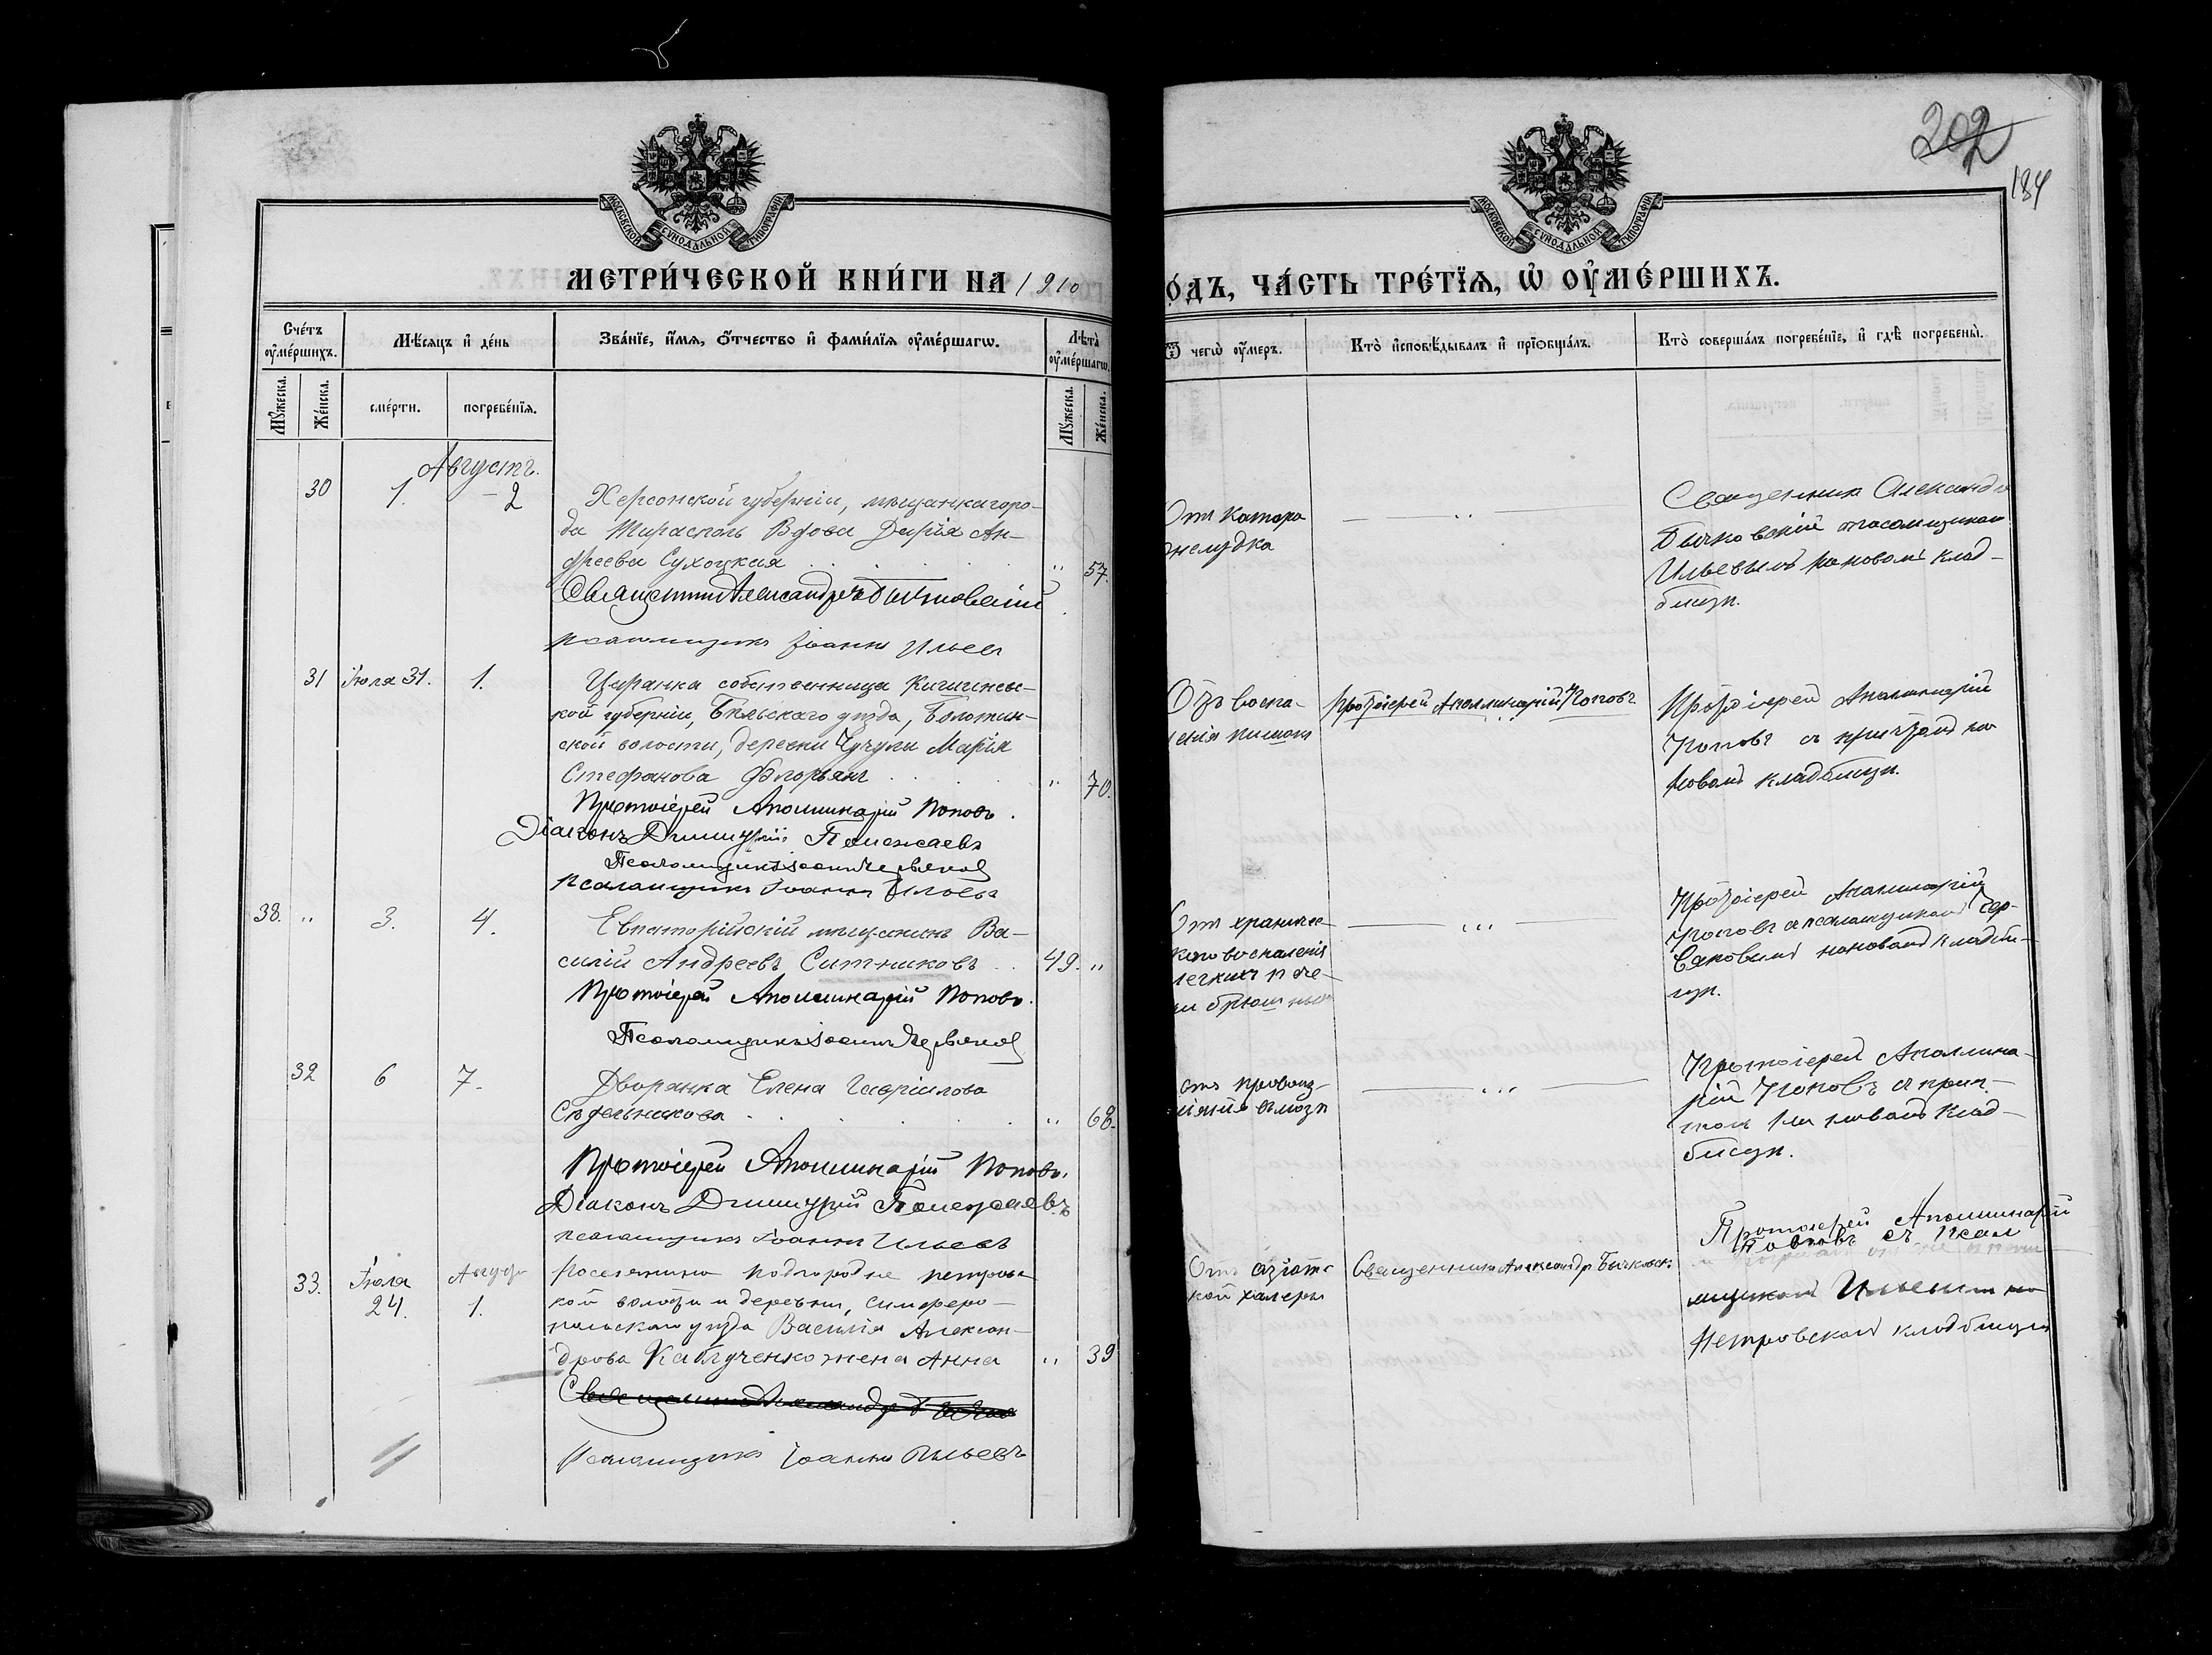 202
184
МОСКОВСКОЙ СѴНОДАЛЬНОЙ ТИПОГРАФІИ
МОСКОВСКОЙ СѴНОДАЛЬНОЙ ТИПОГРАФІИ
МЕТРИ́ЧЕСКОЙ КНИ́ГИ НА 1910
О́ДЪ, ЧА́СТЬ ТРЕ́ТІѦ, Ѡ҆ ОУ҆МЕ́РШИХЪ.
Сче́тъ оу҆ме́ршихъ.
Мѣ́сяцъ и҆ де́нь
Зва́нїе, и҆́мѧ, ѻ҆́тчество и҆ фами́лїѧ оу҆ме́ршагѡ.
Лѣта̀ оу҆ме́ршагѡ.
Мꙋ́жеска.
Же́нска.
сме́рти.
погребе́нїѧ.
Мꙋ́жеска.
Же́нска.
Ѿ чегѡ̀ оу҆́меръ.
Кто̀ и҆сповѣ́дывалъ и҆ прїѻбща́лъ.
Кто̀ соверша́лъ погребе́нїе, и҆ гдѣ̀ погребены̀.
Августъ.
30
1.
2
Херсонской губерніи, мѣщанка горо-
да Тирасполь Вдова Дарія Ан-
дреева Сухоцкая
" 57.
Священникъ Александръ Бычковскій
псаломщикъ Іоаннъ Ильевъ
Отъ Катара
желудка
Священникъ Александръ
Бычковскій псаломщикомъ
Ильевымъ на новомъ клад-
бищѣ.
31
Іюля 31.
1.
Царанка собственница Кишинев-
кой губерніи, Бѣльскаго уѣзда, Болотин-
ской волости, деревни Чучули Марія
Стефанова Флорьянъ
" 70.
Протоіерей Аполлинарій Поповъ.
Діаконъ Димитрій Полежаевъ
Псаломщикъ Іоаннъ Червяковъ
Псаломщикъ Іоаннъ Ильевъ
Отъ воспа-
ленія кишекъ
Протоіерей Аполлинарій Поповъ
Протоіерей Аполлинарій
Поповъ съ причтомъ на
новомъ кладбищѣ.
38.
"
3.
4.
Евпаторійскій мѣщанинъ Ва-
силій Андреевъ Ситниковъ
49. "
Протоіерей Аполлинарій Поповъ.
Псаломщикъ Іоаннъ Червяковъ
Отъ хроничес-
каго воспаленія
легкихъ и
брюшины
Протоіерей Аполлинарій
Поповъ съ псаломщикомъ Чер-
вяковымъ на новомъ кладби-
щѣ.
32
6
7.
Дворянка Елена Гавріилова
Сѣдельникова
" 68.
Протоіерей Аполлинарій Поповъ.
Діаконъ Димитрій Полежаевъ
псаломщикъ Іоаннъ Ильевъ
отъ кровоиз-
ліянія въ мозгъ
Протоіерей Аполлина-
рій Поповъ съ прич-
томъ на новомъ клад-
бищѣ.
33.
Іюля
24.
Август
1.
Поселянина Подгородне Петровс-
кой волости и деревни, Симферо-
польскаго уѣзда Василія Алексан-
дрова Каблученко жена Анна
" 39
Псаломщикъ Іоаннъ Ильевъ
Отъ азіатс
кой холеры
Священникъ Александръ Бычковск
Протоіерей Аполлинарій
Поповъ съ псал
мщикомъ Ильевымъ на
Петровскомъ кладбищѣ